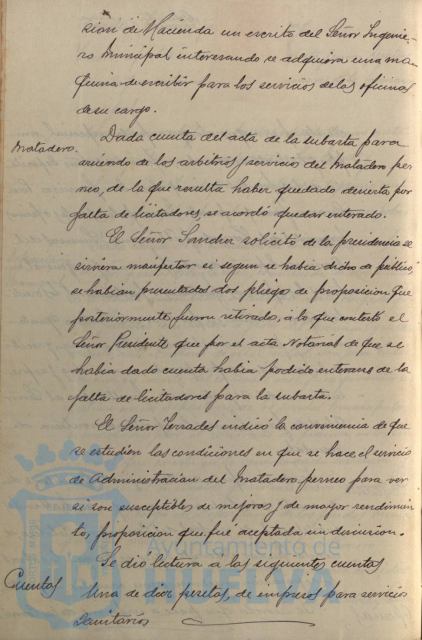 sion de Hacienda un escrito del Señor Ingenie-
ro Municipal interesando se adquiera una ma-
quina de escribir para los servicios de las oficinas
de su cargo.
Matadero.
Dada cuenta del acta de la subasta para
arriendo de los arbitrios y servicio del Matadero per-
neo, de la que resulta haber quedado desierta por
falta de licitadores, se acordó quedar enterado.
El Señor Sanchez solicitó de la presidencia se
sirviera manifestar si segun se habia dicho de público,
se habian presentados dos pliego de proposicion que
posteriormente fueron retirados, a lo que contestó el
Señor Presidente que por el acta Notarial de que se
habia dado cuenta habia podido enterarse de la
falta de licitadores para la subasta.
El Señor Terrades indicó la conveniencia de que
se estudien las condiciones en que se hace el servicio
de Administracion del Matadero perneo para ver
si son susceptibles de mejoras y de mayor rendimien-
to, proposicion que fué aceptada sin discusion.
Se dió lectura a las siguientes cuentas
Cuentas
Una de diez pesetas, de impresos para servicios
Sanitarios
Ayuntamiento de
HUELVA